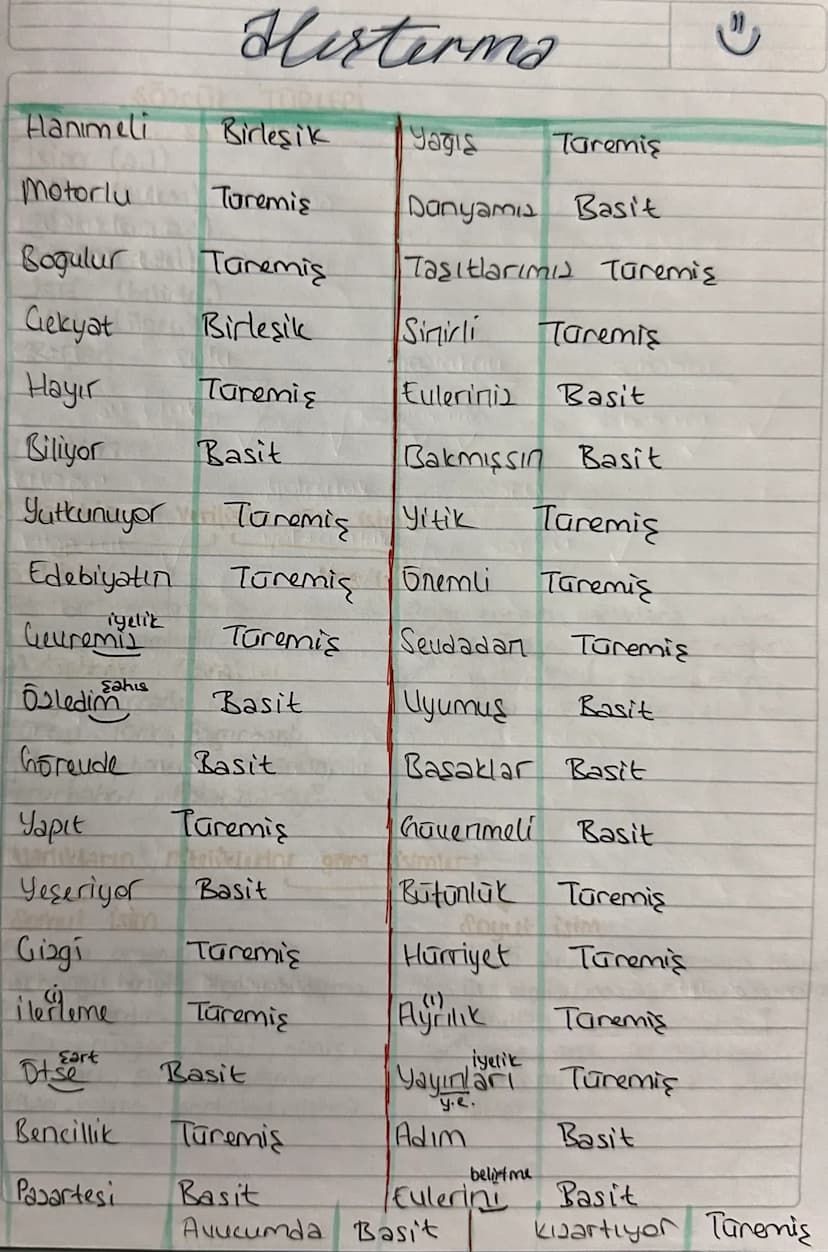 Alıştırma
Hanımeli Birleşik Yağış Türemiş
Motorlu Türemiş Dünyamız Basit
Boğulur Türemiş Taşıtlarımız Türemiş
Çekyat Birleşik Sinirli Türemiş
Hayır Türemiş Evleriniz Basit
Biliyor Basit Bakmışsın Basit
Yutkunuyor Türemiş Yitik Türemiş
Edebiyatın Türemiş Önemli Türemiş
iyelik
Çevremiz Türemiş Sevdadan Türemiş
şahıs
Özledim Basit Uyumuş Basit
Görevde Basit Başaklar Basit
Yapıt Türemiş Güvenmeli Basit
Yeşeriyor Basit Bütünlük Türemiş
Çizgi Türemiş Hürriyet Türemiş
(i) (ı)
İlerleme Türemiş Ayrılık Türemiş
şart iyelik
Ötse Basit Yayınları Türemiş
y.e.
Bencillik Türemiş Adım Basit
belirtme
Pazartesi Basit Evlerini Basit
Avucumda Basit Kızartıyor Türemiş